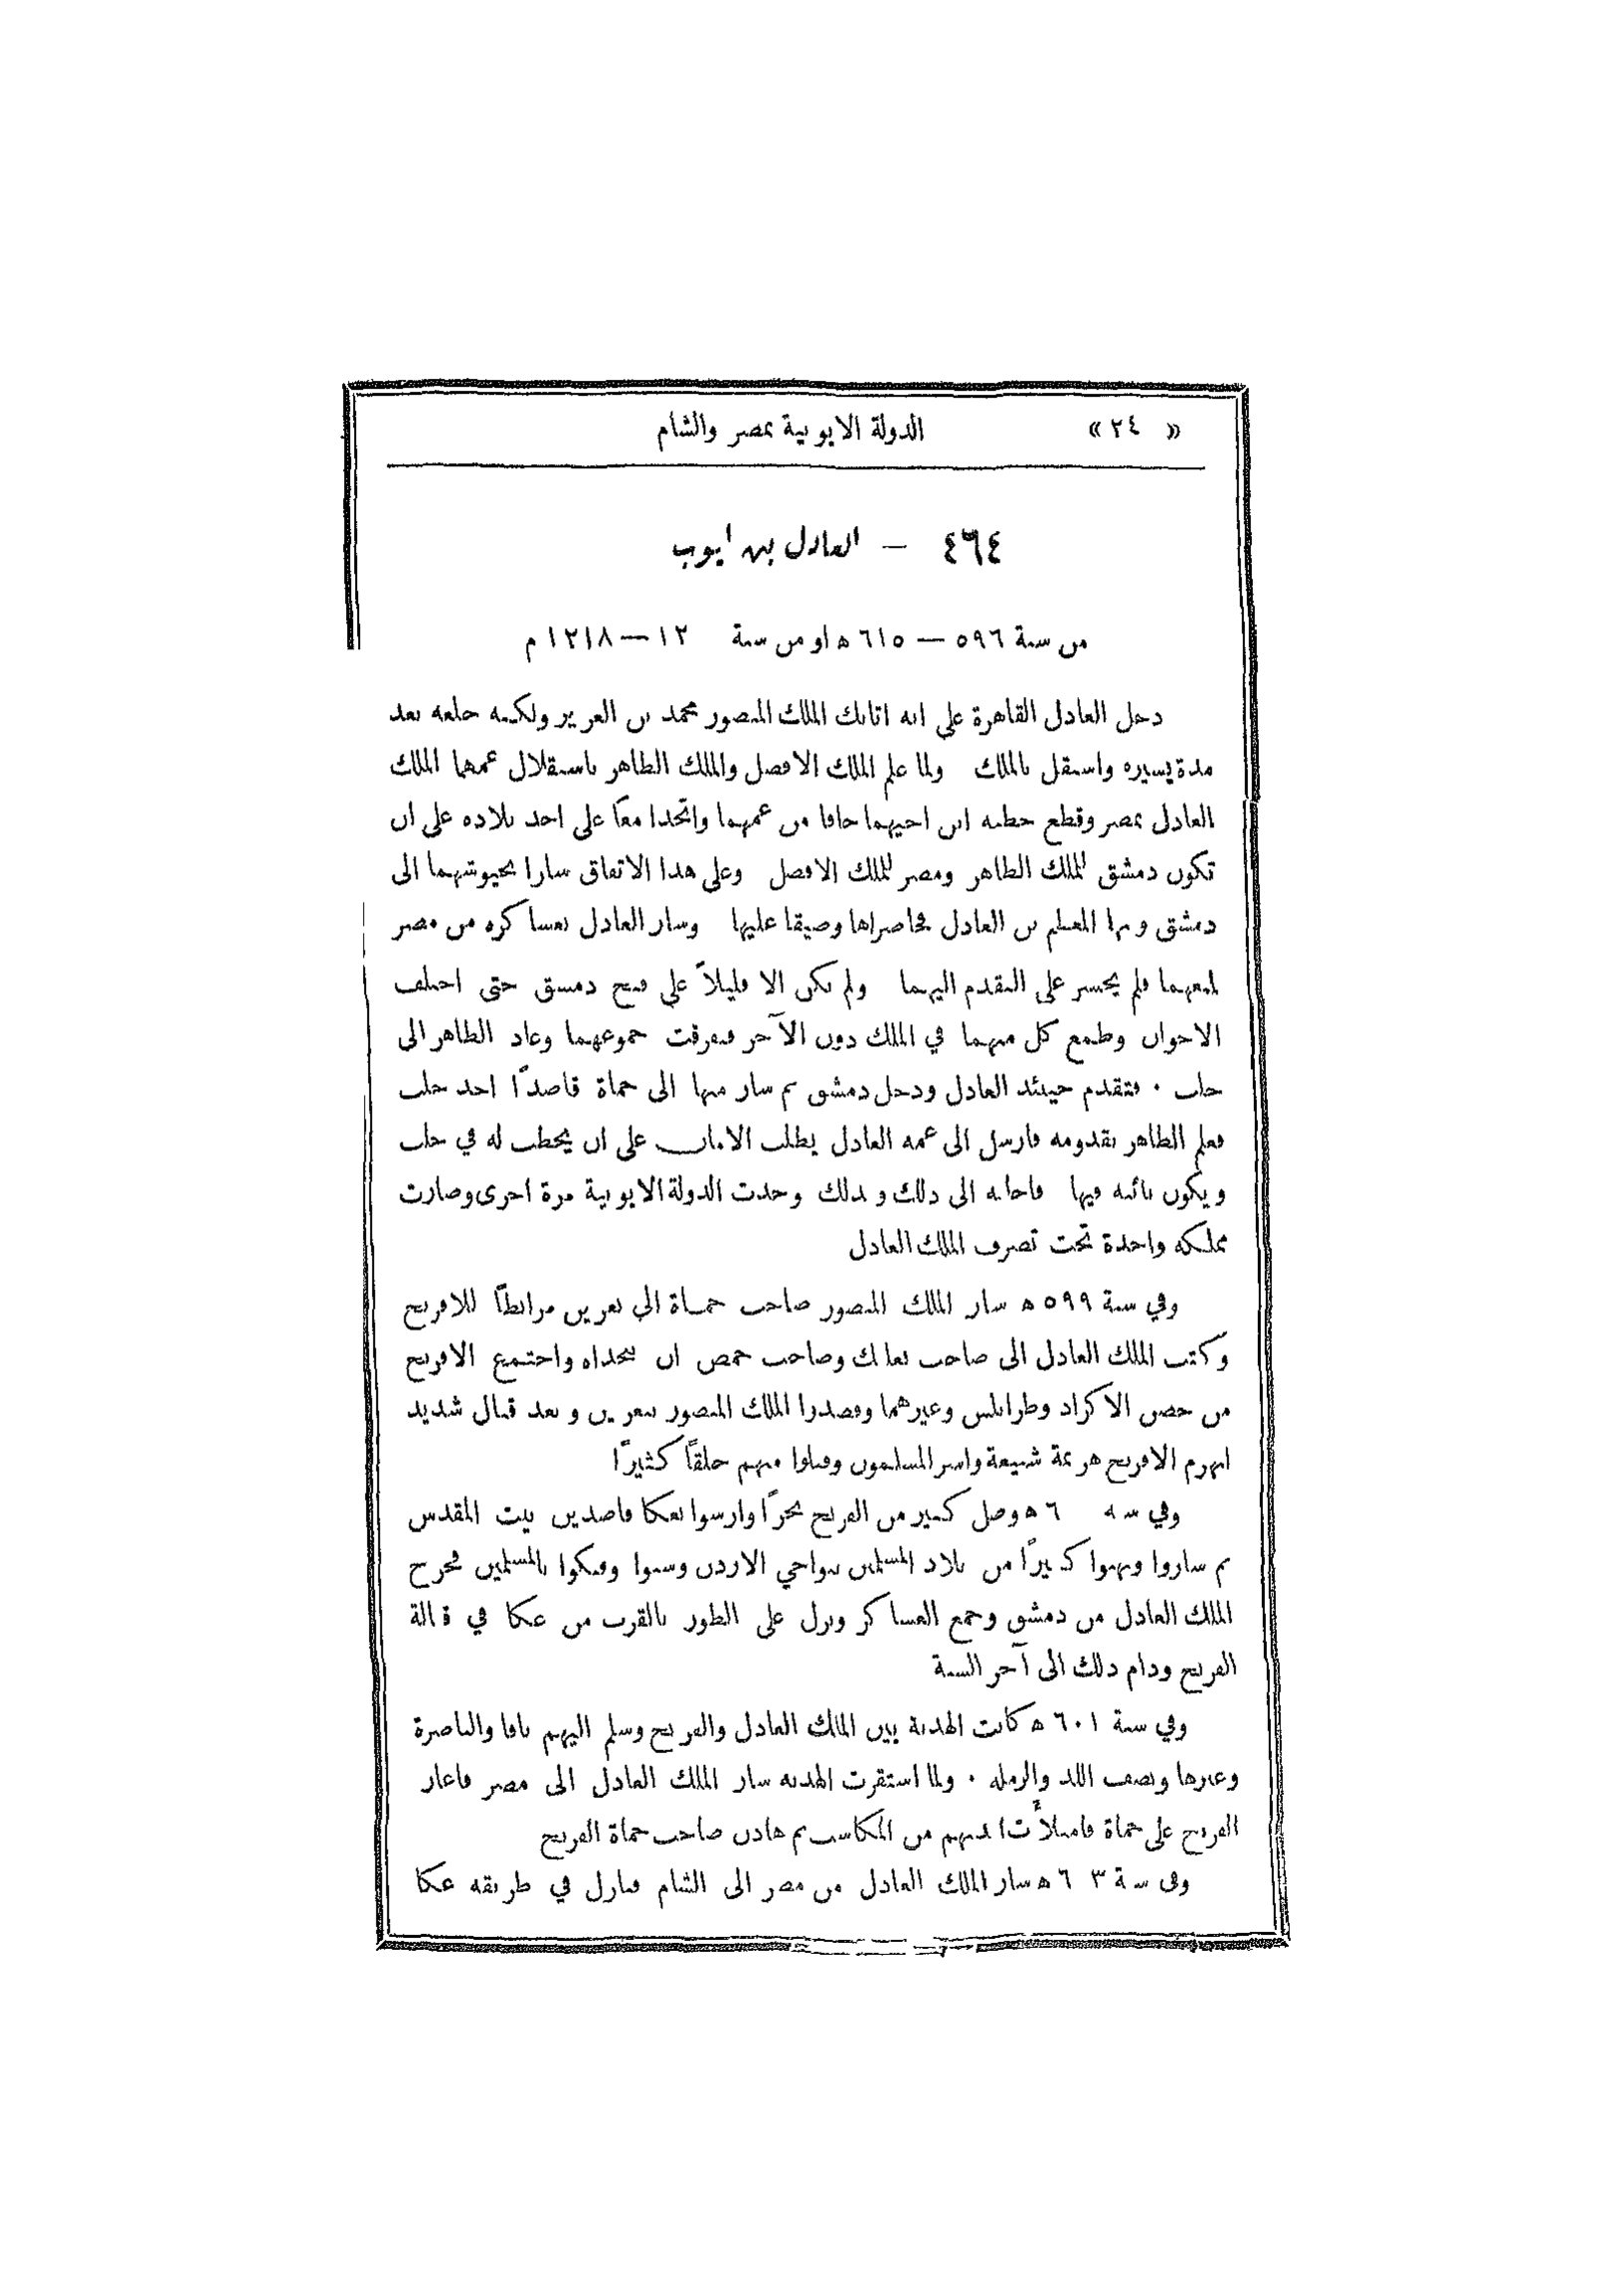 « ٢٤ » الدولة الايوبية بمصر والشام
٤٦٤ — العادل بن ايوب
من سنة ٥٩٦ — ٦١٥ ه او من سنة ١٢ — ١٢١٨ م
دخل العادل القاهرة على انه اتابك الملك المنصور محمد بن العزيز ولكنه خلعه بعد
مدة يسيره واستقل بالملك ولما علم الملك الافضل والملك الظاهر باستقلال عمهما الملك
العادل بمصر وقطع خطبه ابن اخيهما خافا من عمهما واتحدا معًا على اخذ بلاده على ان
تكون دمشق للملك الظاهر ومصر للملك الافضل وعلى هذا الاتفاق سارا بجيوشهما الى
دمشق وبها المعظم بن العادل فحاصراها وضيقا عليها وسار العادل بعساكره من مصر
لمنعهما فلم يجسر على التقدم اليهما ولم يكن الا قليلاً على فتح دمشق حتى اختلف
الاخوان وطمع كل منهما في الملك دون الآخر فتفرقت جموعهما وعاد الظاهر الى
حلب . فتقدم حينئذ العادل ودخل دمشق ثم سار منها الى حماة قاصدًا اخذ حلب
فعلم الظاهر بقدومه فارسل الى عمه العادل يطلب الامان على ان يخطب له في حلب
ويكون نائبه فيها فاجابه الى ذلك وبذلك وحدت الدولة الايوبية مرة اخرى وصارت
مملكه واحدة تحت تصرف الملك العادل
وفي سنة ٥٩٩ ه سار الملك المنصور صاحب حماة الى بعرين مرابطًا للافرنج
وكتب الملك العادل الى صاحب بعلبك وصاحب حمص ان ينجداه واجتمع الافرنج
من حصن الاكراد وطرابلس وغيرهما وقصدوا الملك المنصور ببعرين وبعد قتال شديد
انهزم الافرنج هزيمة شنيعة واسر المسلمون وقتلوا منهم خلقًا كثيرًا
وفي سنة ٦ ه وصل كثير من الفرنج بحرًا وارسوا بعكا قاصدين بيت المقدس
ثم ساروا ونهبوا كثيرًا من بلاد المسلمين بنواحي الاردن وسبوا وفتكوا بالمسلمين فخرج
الملك العادل من دمشق وجمع العساكر ونزل على الطور بالقرب من عكا في قبالة
الفرنج ودام ذلك الى آخر السنة
وفي سنة ٦٠١ ه كانت الهدنة بين الملك العادل والفرنج وسلم اليهم يافا والناصرة
وغيرها ونصف اللد والرمله . ولما استقرت الهدنه سار الملك العادل الى مصر فاغار
الفرنج على حماة فامتلأت ايديهم من المكاسب ثم هادن صاحب حماة الفرنج
وفي سنة ٦٣ ه سار الملك العادل من مصر الى الشام فنازل في طريقه عكا